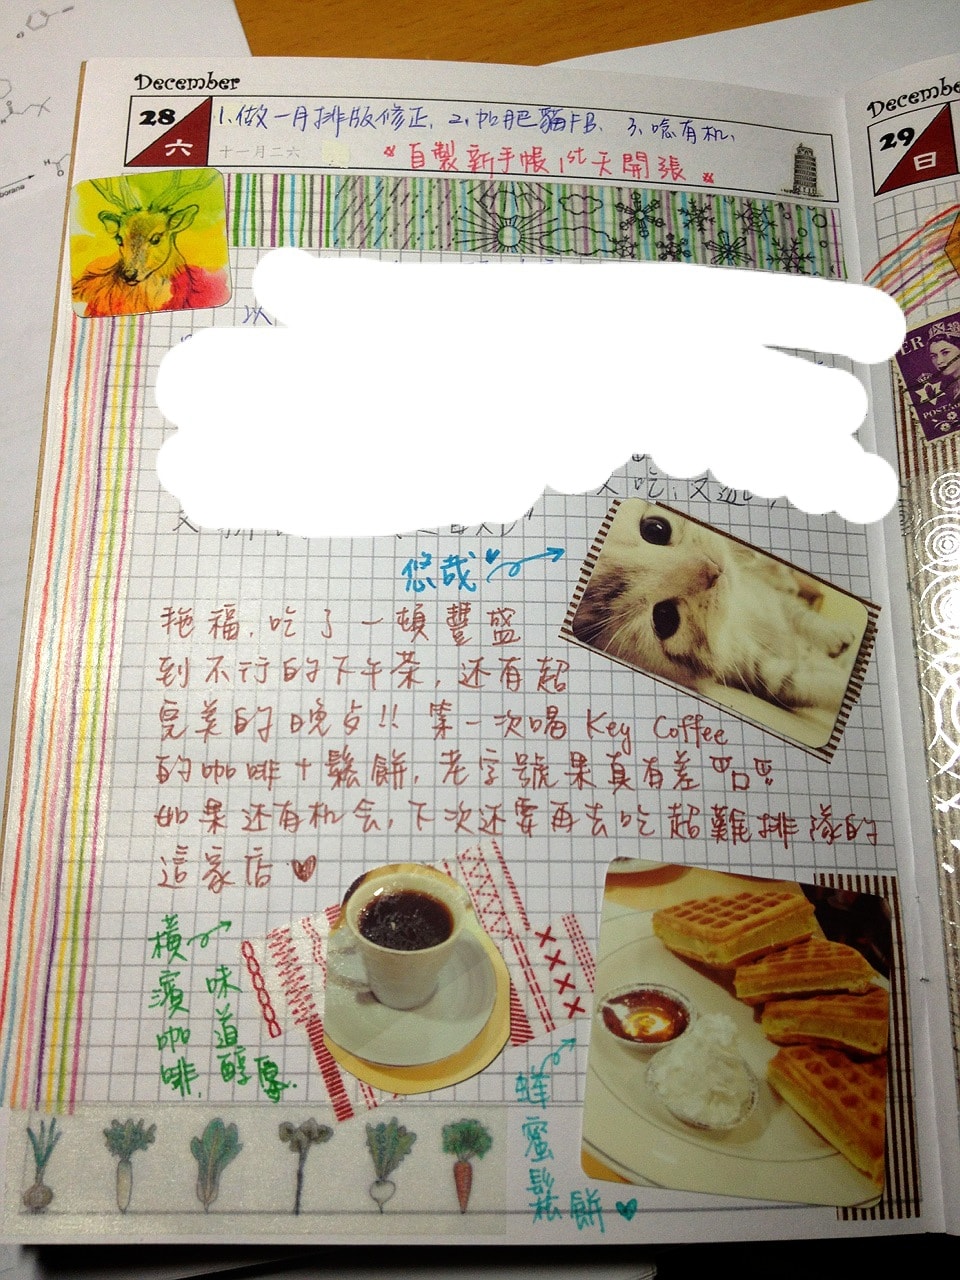 December
28
六
十一月二六
1.做一月排版修正. 2.加肥貓FB. 3.唸有机.
*自製新手帳,1st天開張*
December
29
日
以
又吃,又
悠哉
拖福,吃了一頓豐盛
到不行的下午茶,还有超
完美的晚点!! 第一次喝 Key Coffee
的咖啡+鬆餅,老字號果真有差
如果还有机会,下次还要再去吃超難排隊的
這家店♥
橫濱咖啡,
味道醇厚.
蜂蜜鬆餅♥
POSTAGE
borane